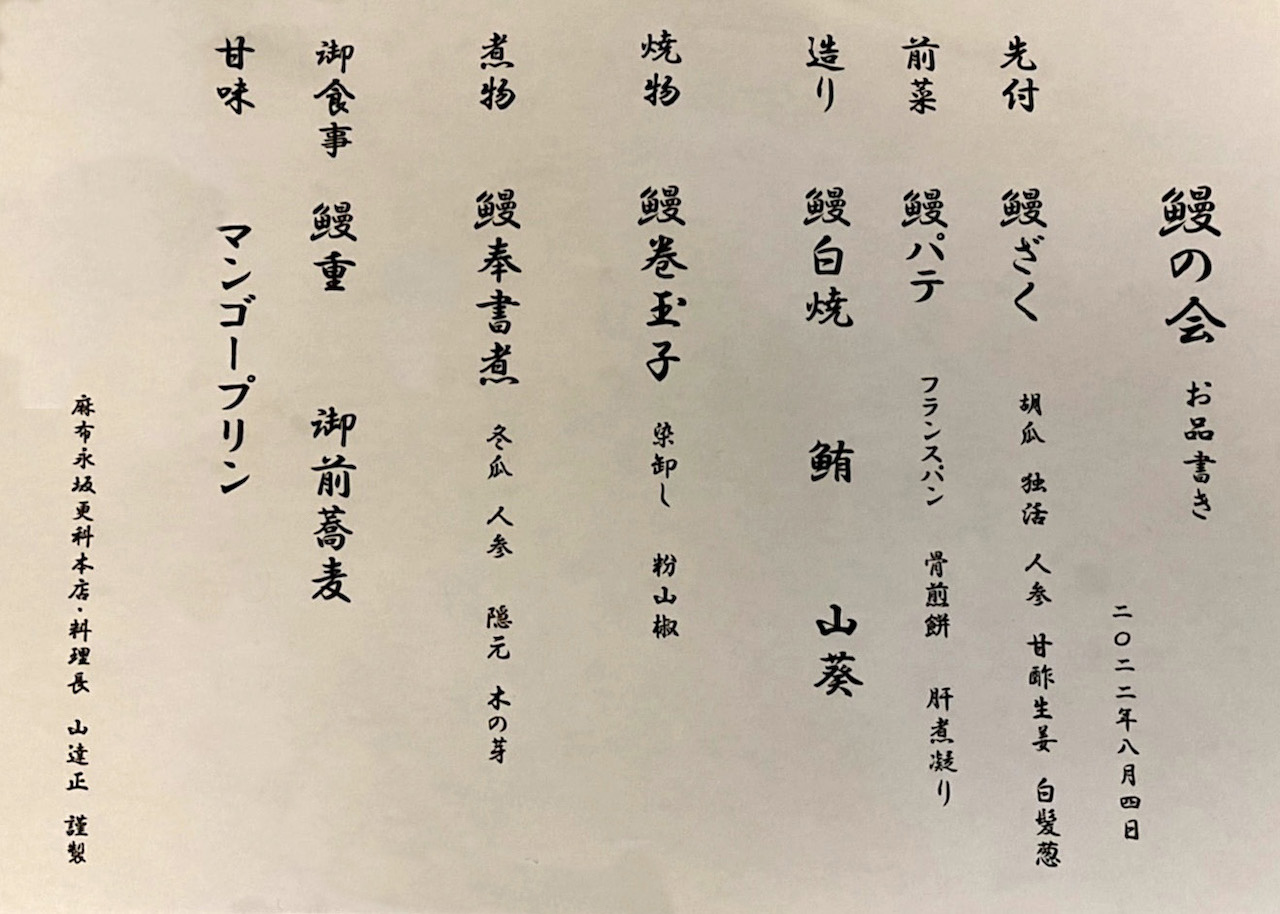 鰻の会 お品書き
二〇二二年八月四日
先付 鰻ざく 胡瓜 独活 人参 甘酢生姜 白髪葱
前菜 鰻パテ フランスパン 骨煎餅 肝煮凝り
造り 鰻白焼 鮪 山葵
焼物 鰻巻玉子 染卸し 粉山椒
煮物 鰻奉書煮 冬瓜 人参 隠元 木の芽
御食事 鰻重 御前蕎麦
甘味 マンゴープリン
麻布永坂更科本店・料理長 山達正 謹製